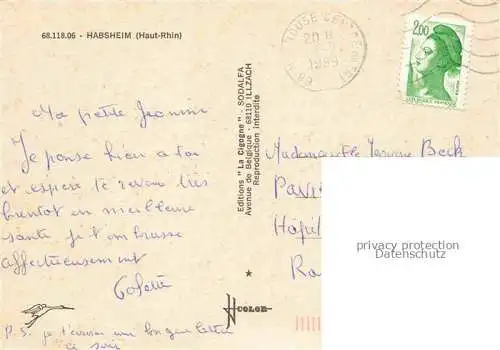 68.118.06 - HABSHEIM (Haut-Rhin)
Ma petite Jeannine
Je pense bien a toi
et espère te revoir très
bientot en meilleure
santé je t'embrasse
affectueusement
Colette
P.S. je t'écrirai une longue lettre
ce soir
Editions "La Cigogne" - SODALFA
Avenue de Belgique - 68110 ILLZACH
Reproduction interdite
COLOR
20 H
1989
2,00
Mademoiselle Jeannine Beck
Hôpi
privacy protection
Datenschutz